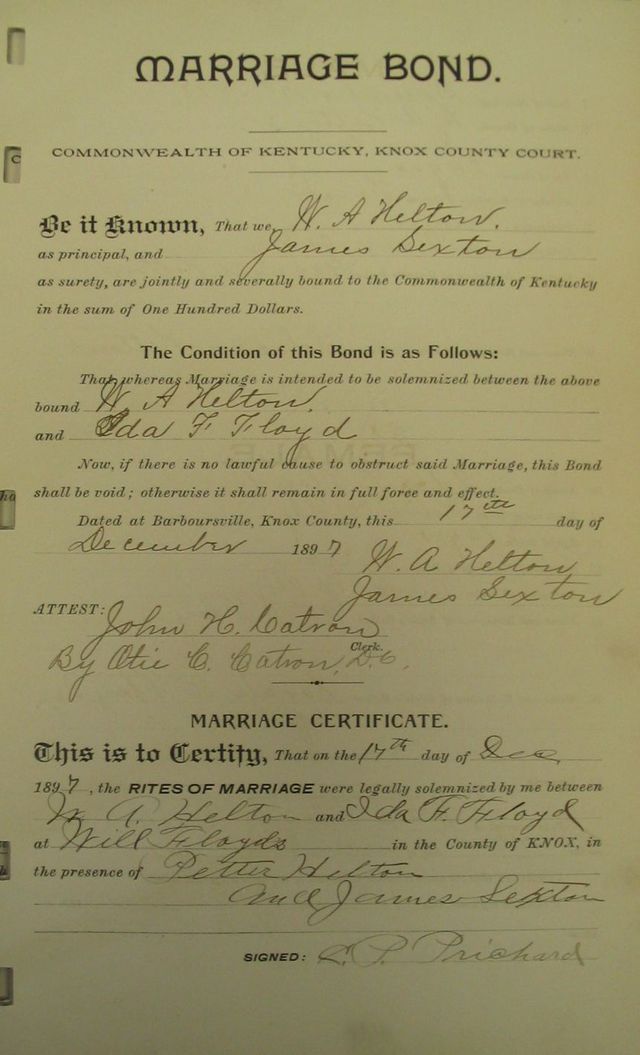 MARRIAGE BOND.
COMMONWEALTH OF KENTUCKY, KNOX COUNTY COURT.
Be it Known, That we, W. A Helton.
as principal, and James Sexton
as surety, are jointly and severally bound to the Commonwealth of Kentucky
in the sum of One Hundred Dollars.
The Condition of this Bond is as Follows:
That whereas Marriage is intended to be solemnized between the above
bound W. A Helton.
and Ida F Floyd
Now, if there is no lawful cause to obstruct said Marriage, this Bond
shall be void; otherwise it shall remain in full force and effect.
Dated at Barboursville, Knox County, this 17th day of
December 1897
W. A Helton
James Sexton
ATTEST: John H. Catron
Clerk.
By Otie C. Catron, D.C.
MARRIAGE CERTIFICATE.
This is to Certify, That on the 17th day of Dec
1897, the RITES OF MARRIAGE were legally solemnized by me between
W. A. Helton and Ida F. Floyd
at Will Floyds in the County of KNOX, in
the presence of Petter Helton
and James Sexton
SIGNED: P. Prichard